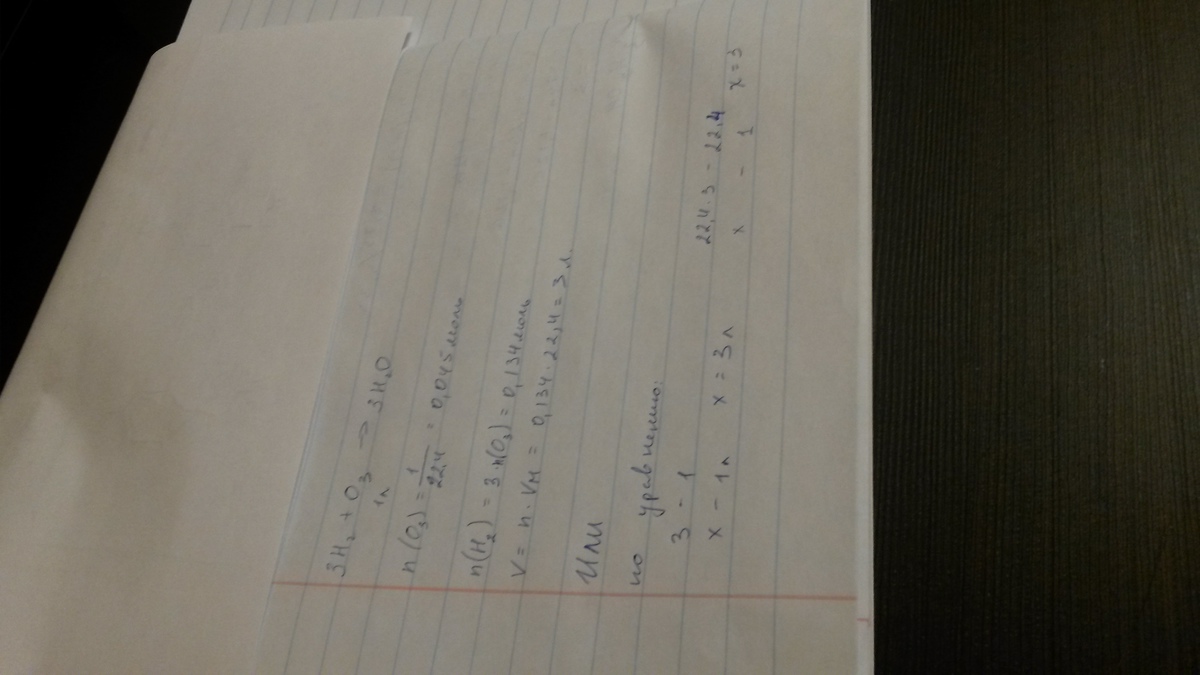 3H₂ + O₃ → 3H₂O
1л
n(O₃) = 1/22,4 = 0,045 моль
n(H₂) = 3·n(O₃) = 0,134 моль
V = n·Vм = 0,134·22,4 = 3 л.
Или
по уравнению:
3 - 1
x - 1л x = 3л
22,4·3 - 22,4
x - 1 x = 3